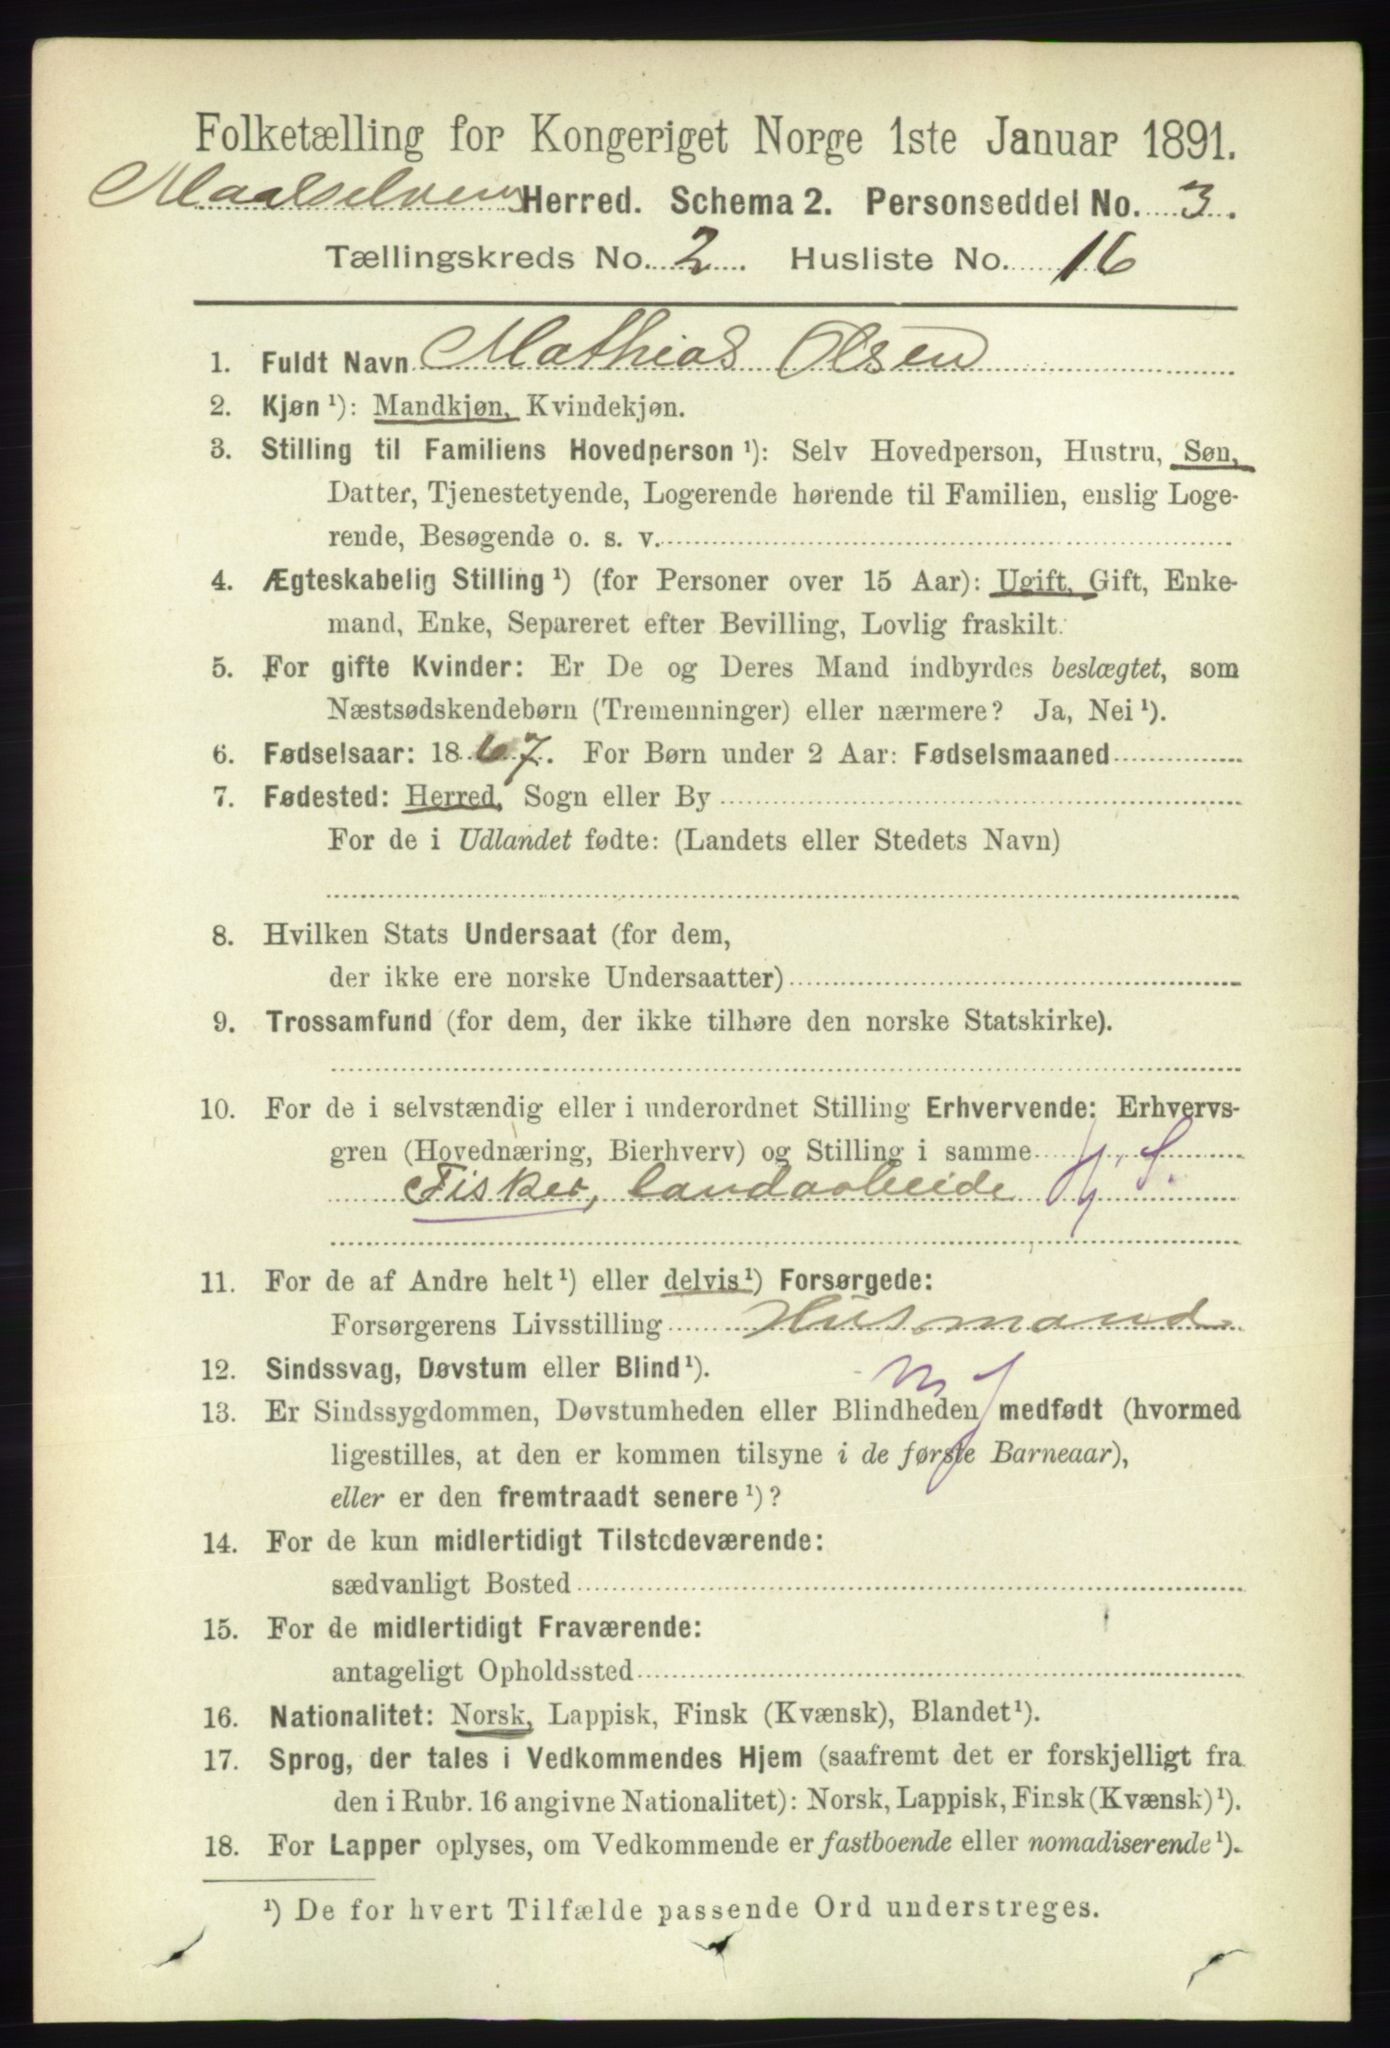 Folketælling for Kongeriget Norge 1ste Januar 1891.
Maalselvens Herred. Schema 2. Personseddel No. 3.
Tællingskreds No. 2. Husliste No. 16
1. Fuldt Navn Mathias Olsen
2. Kjøn ¹): Mandkjøn, Kvindekjøn.
3. Stilling til Familiens Hovedperson ¹): Selv Hovedperson, Hustru, Søn,
Datter, Tjenestetyende, Logerende hørende til Familien, enslig Loge-
rende, Besøgende o. s. v.
4. Ægteskabelig Stilling ¹) (for Personer over 15 Aar): Ugift, Gift, Enke-
mand, Enke, Separeret efter Bevilling, Lovlig fraskilt.
5. For gifte Kvinder: Er De og Deres Mand indbyrdes beslægtet, som
Næstsødskendebørn (Tremenninger) eller nærmere? Ja, Nei ¹).
6. Fødselsaar: 1867. For Børn under 2 Aar: Fødselsmaaned
7. Fødested: Herred, Sogn eller By
For de i Udlandet fødte: (Landets eller Stedets Navn)
8. Hvilken Stats Undersaat (for dem,
der ikke ere norske Undersaatter)
9. Trossamfund (for dem, der ikke tilhøre den norske Statskirke).
10. For de i selvstændig eller i underordnet Stilling Erhvervende: Erhvervs-
gren (Hovednæring, Bierhverv) og Stilling i samme
Fisker, landarbeide H. S.
11. For de af Andre helt ¹) eller delvis ¹) Forsørgede:
Forsørgerens Livsstilling Husmand
12. Sindssvag, Døvstum eller Blind ¹).
13. Er Sindssygdommen, Døvstumheden eller Blindheden medfødt (hvormed
ligestilles, at den er kommen tilsyne i de første Barneaar),
eller er den fremtraadt senere ¹)?
14. For de kun midlertidigt Tilstedeværende:
sædvanligt Bosted
15. For de midlertidigt Fraværende:
antageligt Opholdssted
16. Nationalitet: Norsk, Lappisk, Finsk (Kvænsk), Blandet ¹).
17. Sprog, der tales i Vedkommendes Hjem (saafremt det er forskjelligt fra
den i Rubr. 16 angivne Nationalitet): Norsk, Lappisk, Finsk (Kvænsk) ¹).
18. For Lapper oplyses, om Vedkommende er fastboende eller nomadiserende ¹).
¹) De for hvert Tilfælde passende Ord understreges.